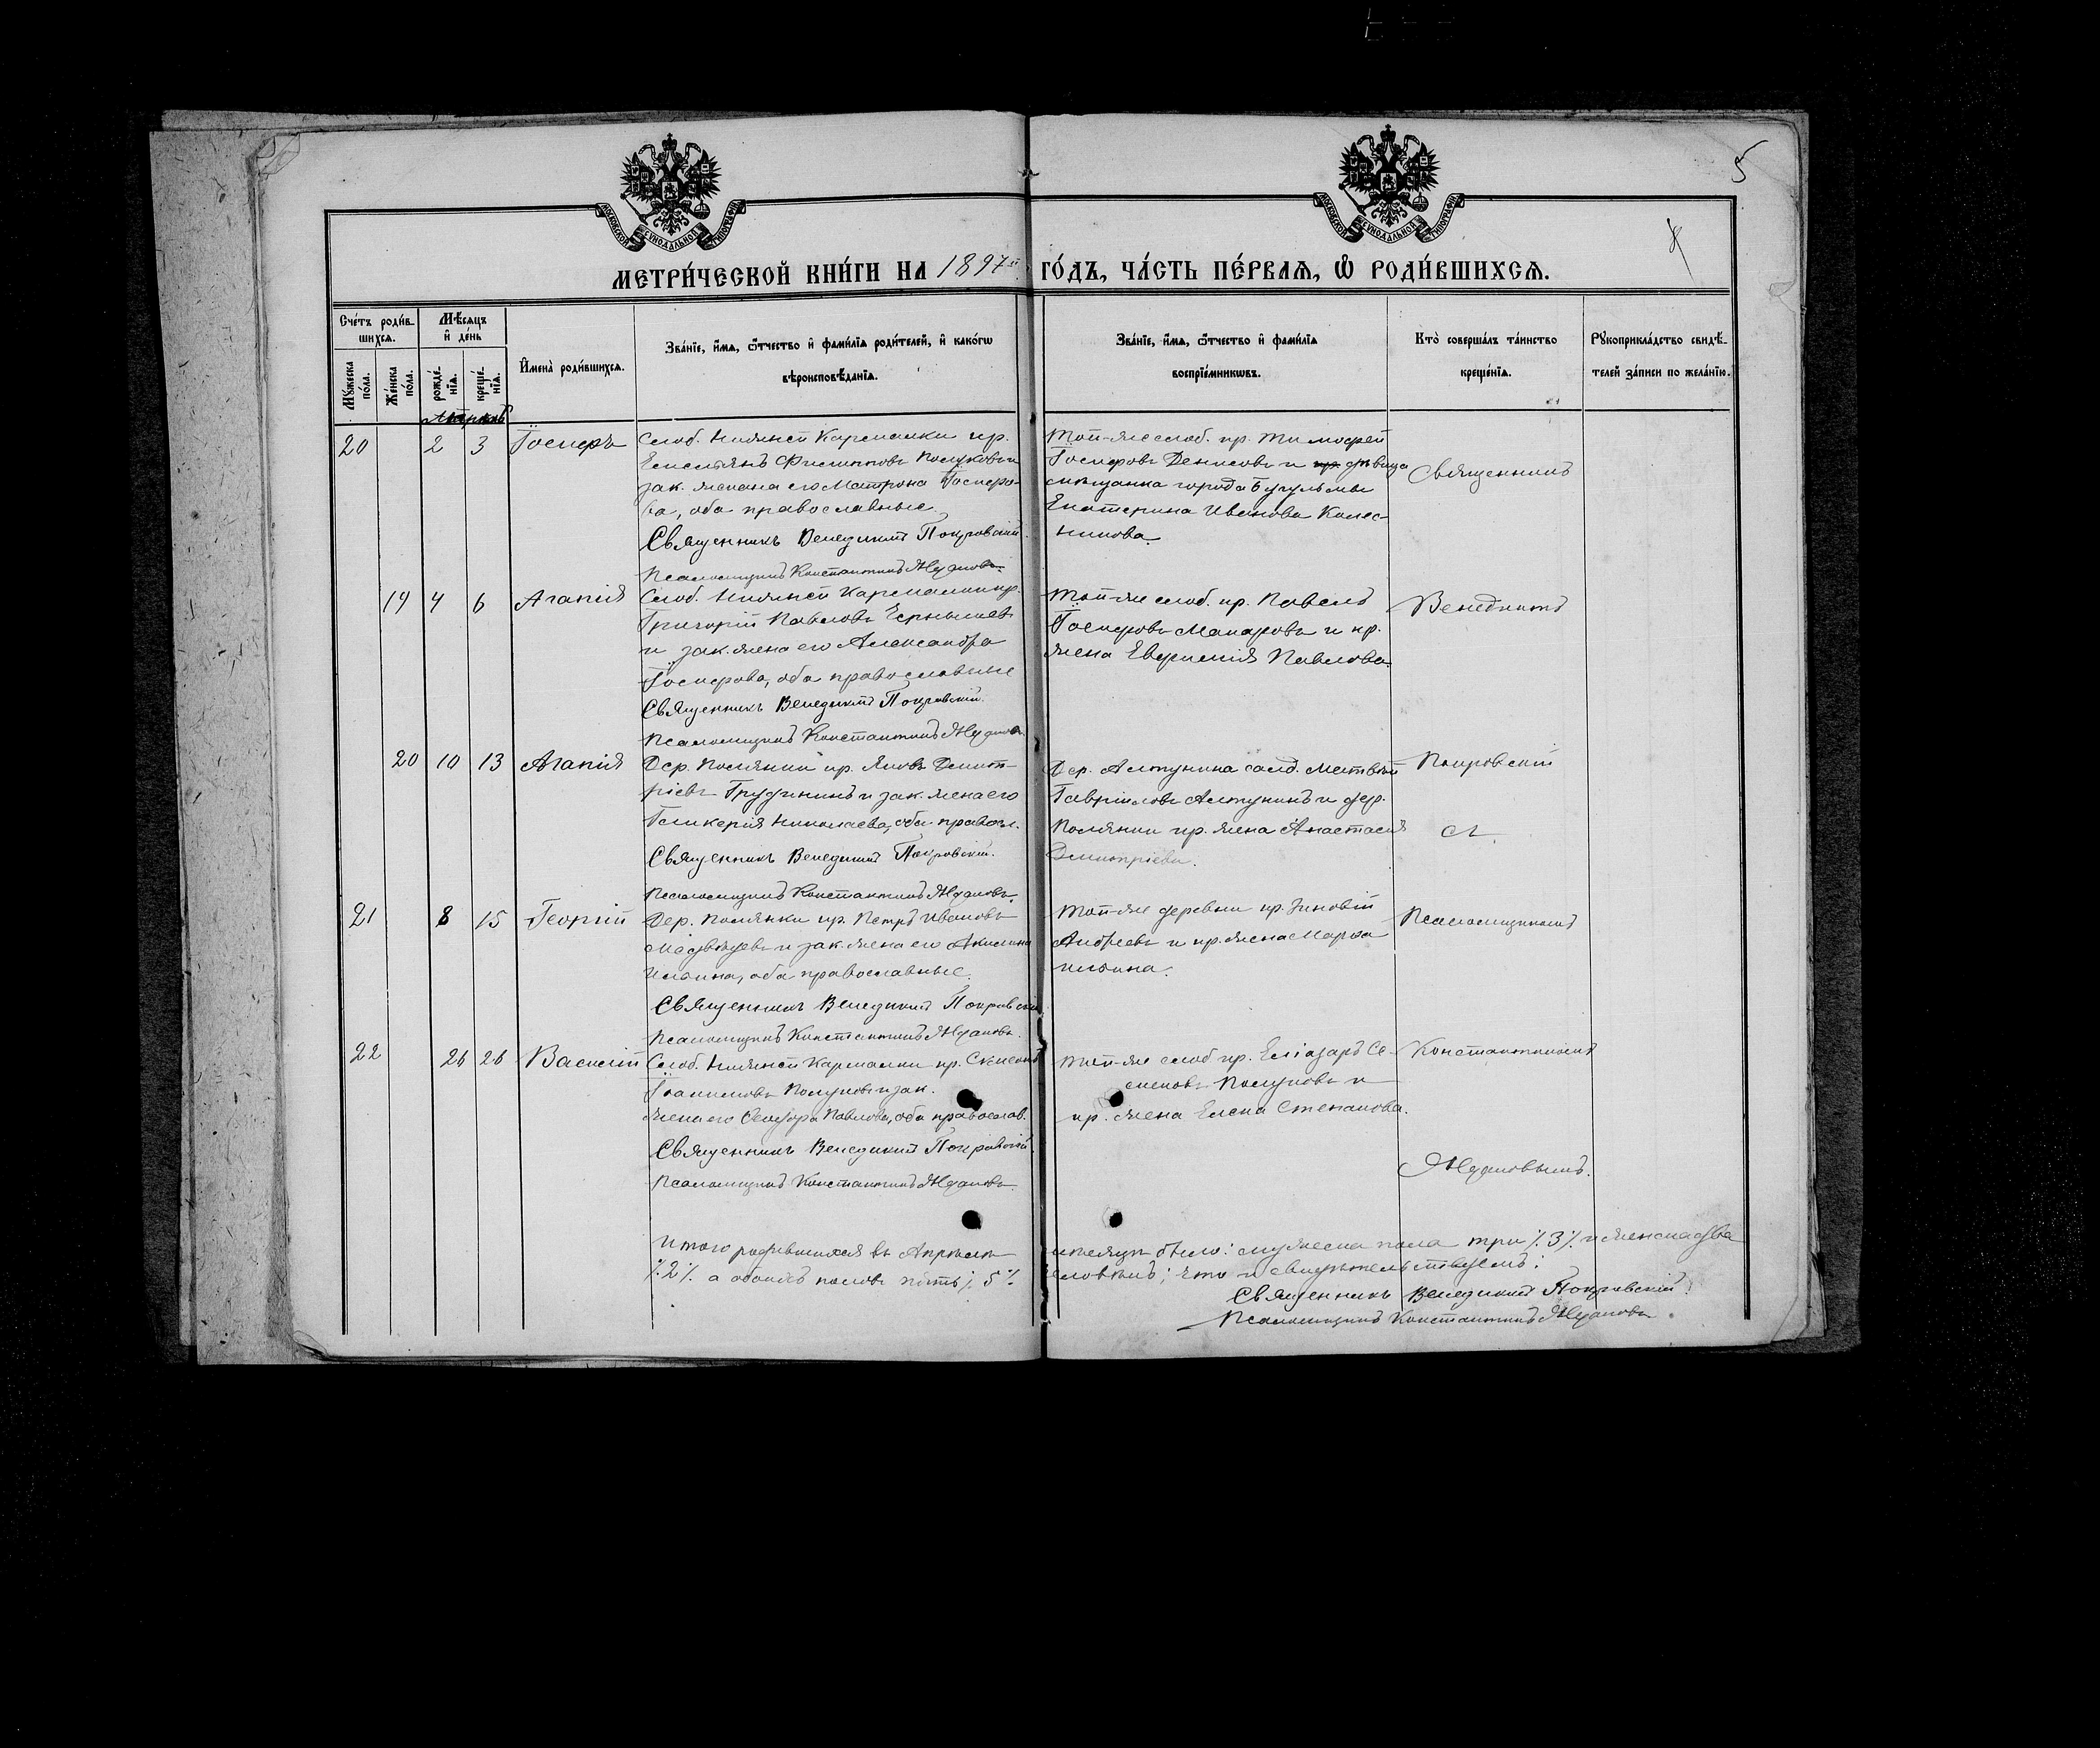 5
МОСКОВСКОЙ СУНОДАЛЬНОЙ ТИПОГРАФІИ
МОСКОВСКОЙ СУНОДАЛЬНОЙ ТИПОГРАФІИ
МЕТРИ́ЧЕСКОЙ КНИ́ГИ НА 1897й ГО́ДЪ, ЧА́СТЬ ПЕ́РВАѦ, Ѽ РОДИ́ВШИХСѦ.
Сче́тъ роди́в-
шихсѧ.
Му́жеска по́ла.
Же́нска по́ла.
Мѣ́сѧцъ
и҆ де́нь
рожде́-нїѧ.
креще́-нїѧ.
И҆мена̀ роди́вшихсѧ.
Зва́нїе, и҆́мѧ, ѻ҆́тчество и҆ фами́лїѧ роди́телей, и҆ како́гѡ
вѣроисповѣ́данїѧ.
Зва́нїе, и҆́мѧ, ѻ҆́тчество и҆ фами́лїѧ
воспрїе́мникѡвъ.
Кто̀ соверша́лъ та́инство
креще́нїѧ.
Рꙋкоприкла́дство свидѣ́-
телей за́писи по жела́нїю.
20 2 3 Іосифъ
Слоб. Нижней Кармалки кр.
Емельянъ Филипповъ Полуковъ и
зак. жена его Матрона Іосифо-
ва, оба православные.
Священникъ Венедиктъ Покровскій.
Псаломщикъ Константинъ Ждановъ.
Той-же слоб. кр. Тимофей
Іосифовъ Денисовъ и кр. дѣвица
мѣщанка города Бугульмы
Екатерина Иванова Колес-
никова.
Священникъ
19 4 6 Агапія
Слоб. Нижней Кармалки кр.
Григорій Павловъ Чернышевъ
и зак. жена его Александра
Іосифова, оба православные
Священникъ Венедиктъ Покровскій.
Псаломщикъ Константинъ Ждановъ.
Той-же слоб. кр. Павелъ
Іосифовъ Макаровъ и кр.
жена Евфимія Павлова.
Венедиктъ
20 10 13 Агапія
Дер. Полянки кр. Яковъ Димит-
ріевъ Грудининъ и зак. жена его
Гликерія Николаева, оба правосл.
Священникъ Венедиктъ Покровскій.
Псаломщикъ Константинъ Ждановъ.
Дер. Алтунина солд. Матвѣй
Гавріиловъ Алтунинъ и дер.
Полянки кр. жена Анастасія
Димитріева.
Покровскій
съ
21 8 15 Георгій
Дер. Полянки кр. Петръ Ивановъ
Медвѣдевъ и зак. жена его Акилина
Ильина, оба православные.
Священникъ Венедиктъ Покровскій
Псаломщикъ Константинъ Ждановъ.
Той-же деревни кр. Зиновій
Андреевъ и кр. жена Марѳа
Ильина.
Псаломщикомъ
22 26 26 Василій
Слоб. Нижней Кармалки кр.
Іоакимовъ Полуковъ и зак.
жена его Павлова, оба православ.
Священникъ Венедиктъ Покровскій.
Псаломщикъ Константинъ Ждановъ.
Той-же слоб. кр. Еліазаръ Се-
меновъ Полуковъ и
кр. жена Елена Степанова.
Константиномъ
Ждановымъ.
Итого родившихся въ Апрѣлѣ мѣсяцѣ было: мужеска пола три ⁒ 3 ⁒ и женска два
⁒ 2 ⁒ а обоихъ половъ пять ⁒ 5 ⁒ человѣкъ; что и свидѣтельствуемъ:
Священникъ Венедиктъ Покровскій.
Псаломщикъ Константинъ Ждановъ.